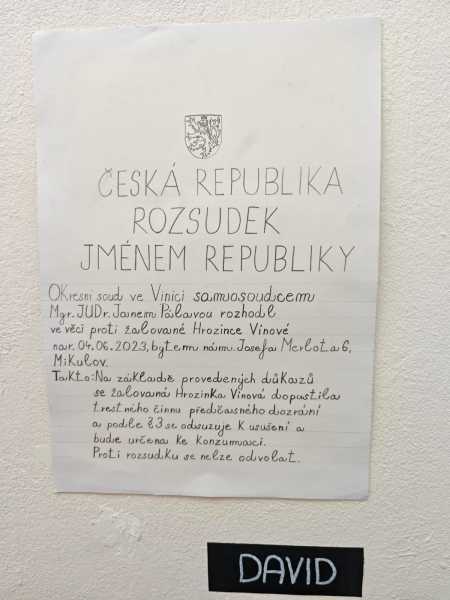 ČESKÁ REPUBLIKA
ROZSUDEK
JMÉNEM REPUBLIKY
Okresní soud ve Vinici samosoudcem
Mgr. JUDr. Janem Pálavou rozhodl
ve věci proti žalované Hrozince Vínové
nar. 04.06.2023, bytem nám. Josefa Merlota 6,
Mikulov.
Takto: Na základě provedených důkazů
se žalovaná Hrozinka Vínová dopustila
trestného činu předčasného dozrání
a podle §3 se odsuzuje k usušení a
bude určena ke konzumaci.
Proti rozsudku se nelze odvolat.
DAVID